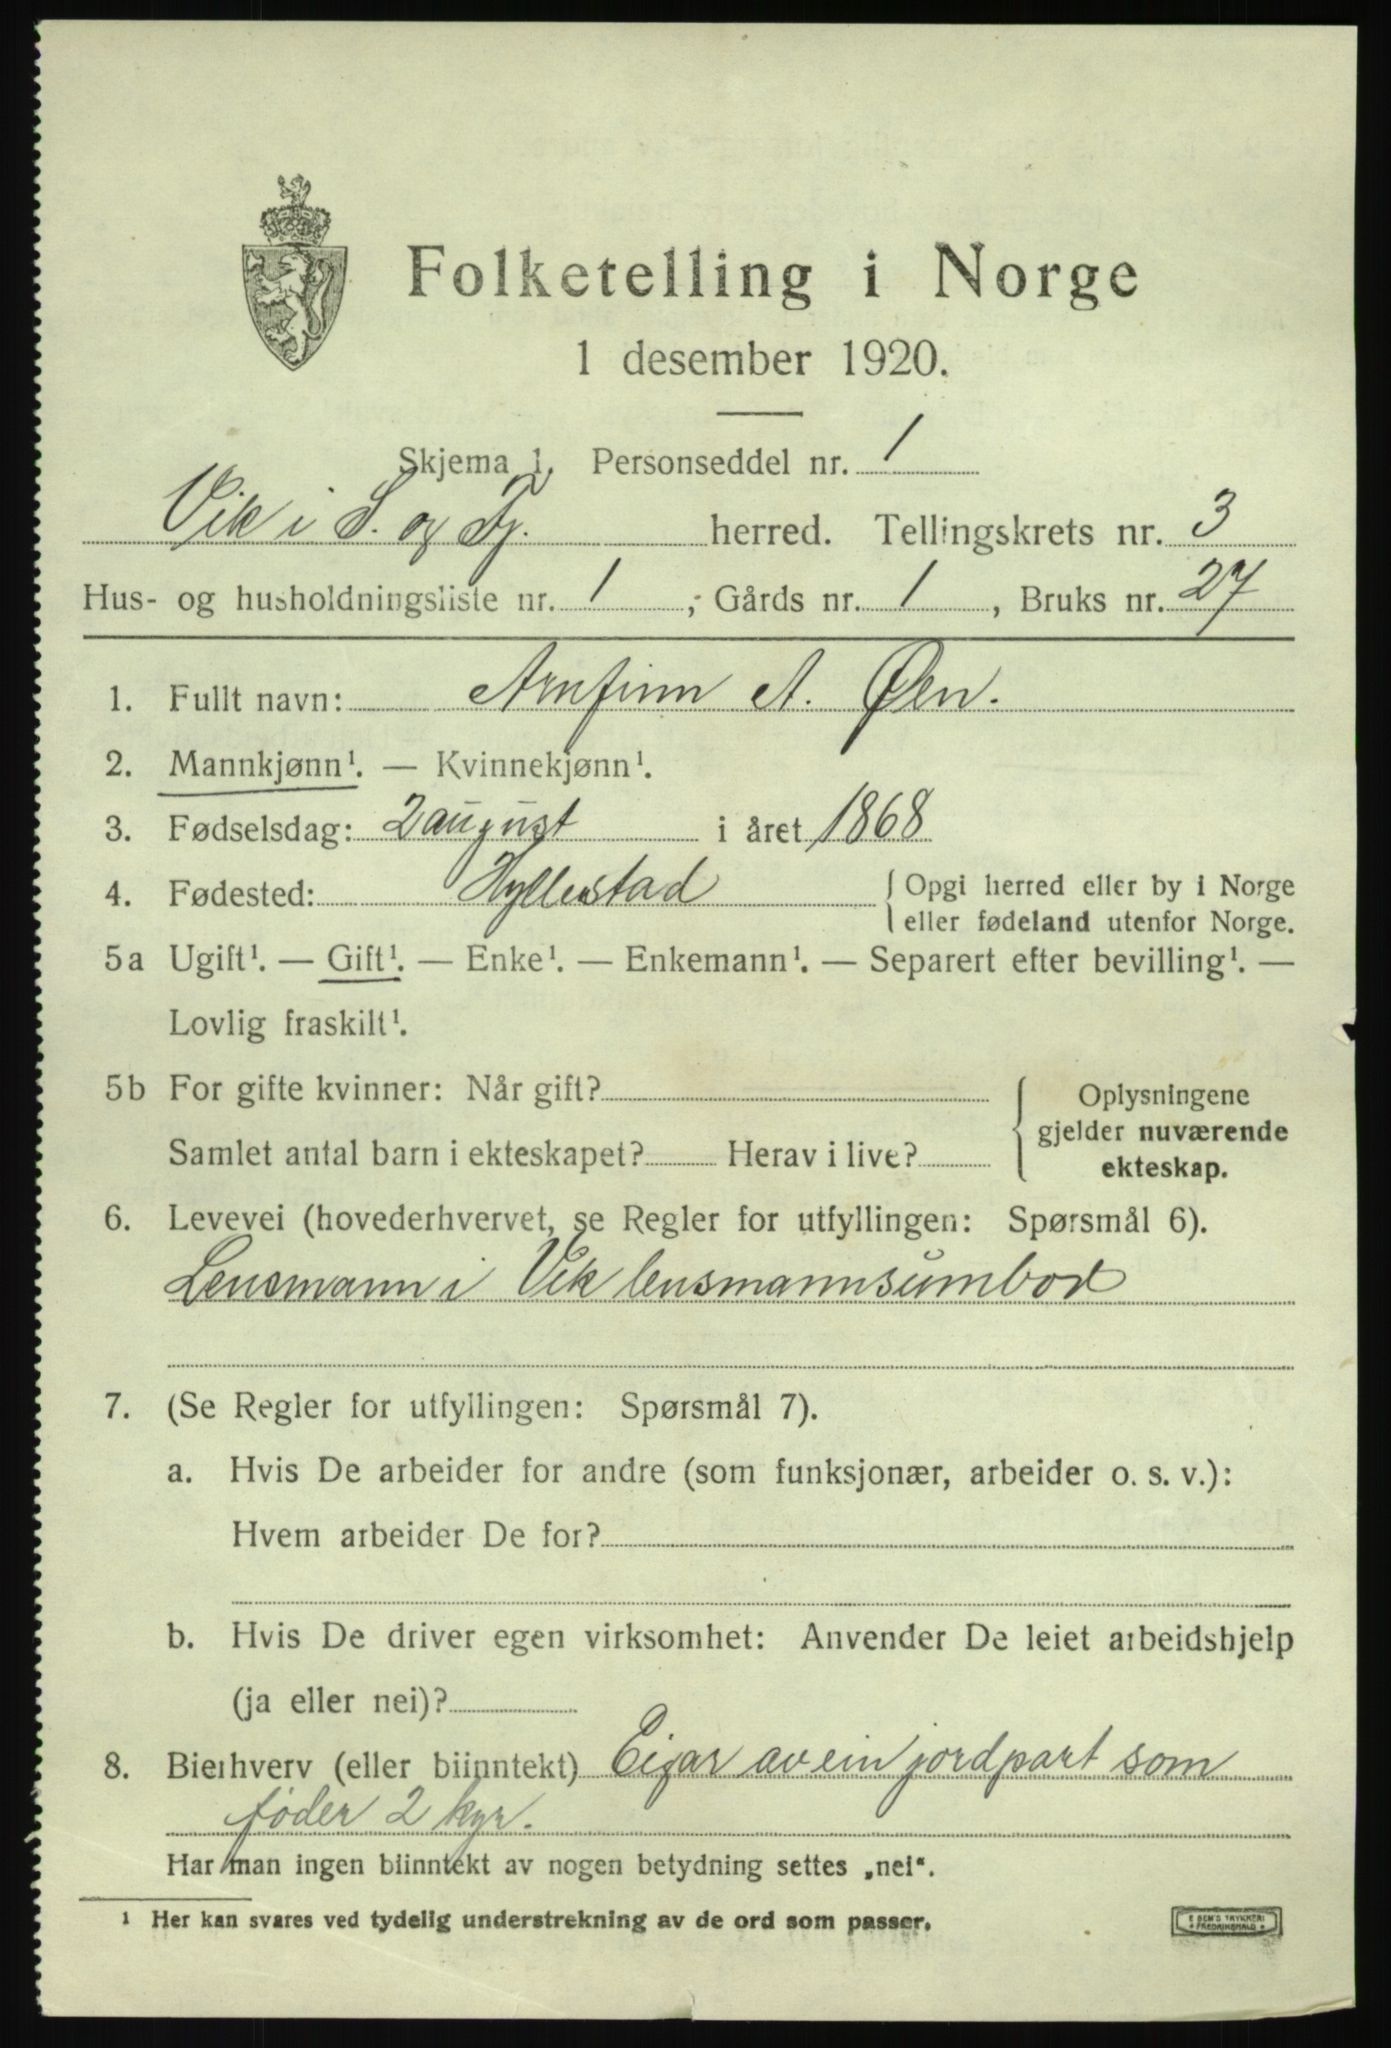 Folketelling i Norge
1 desember 1920.
Skjema 1. Personseddel nr. 1
Vik i S. og Fj. herred. Tellingskrets nr. 3
Hus- og husholdningsliste nr. 1, Gårds nr. 1, Bruks nr. 27
1. Fullt navn: Arnfinn A. Øen.
2. Mannkjønn¹. — Kvinnekjønn¹.
3. Fødselsdag: 2 august i året 1868
4. Fødested: Hyllestad { Opgi herred eller by i Norge
eller fødeland utenfor Norge.
5a Ugift¹. — Gift¹. — Enke¹. — Enkemann¹. — Separert efter bevilling¹. —
Lovlig fraskilt¹.
5b For gifte kvinner: Når gift?
Samlet antal barn i ekteskapet? Herav i live?
Oplysningene
gjelder nuværende
ekteskap.
6. Levevei (hovederhvervet, se Regler for utfyllingen: Spørsmål 6).
Lensmann i Vik lensmannsumbod
7. (Se Regler for utfyllingen: Spørsmål 7).
a. Hvis De arbeider for andre (som funksjonær, arbeider o. s. v.):
Hvem arbeider De for?
b. Hvis De driver egen virksomhet: Anvender De leiet arbeidshjelp
(ja eller nei)?
8. Bierhverv (eller biinntekt) Eigar av ein jordpart som
føder 2 kyr.
Har man ingen biinntekt av nogen betydning settes „nei“.
¹ Her kan svares ved tydelig understrekning av de ord som passer.
E SEM'S TRYKKERI
FREDRIKSHALD